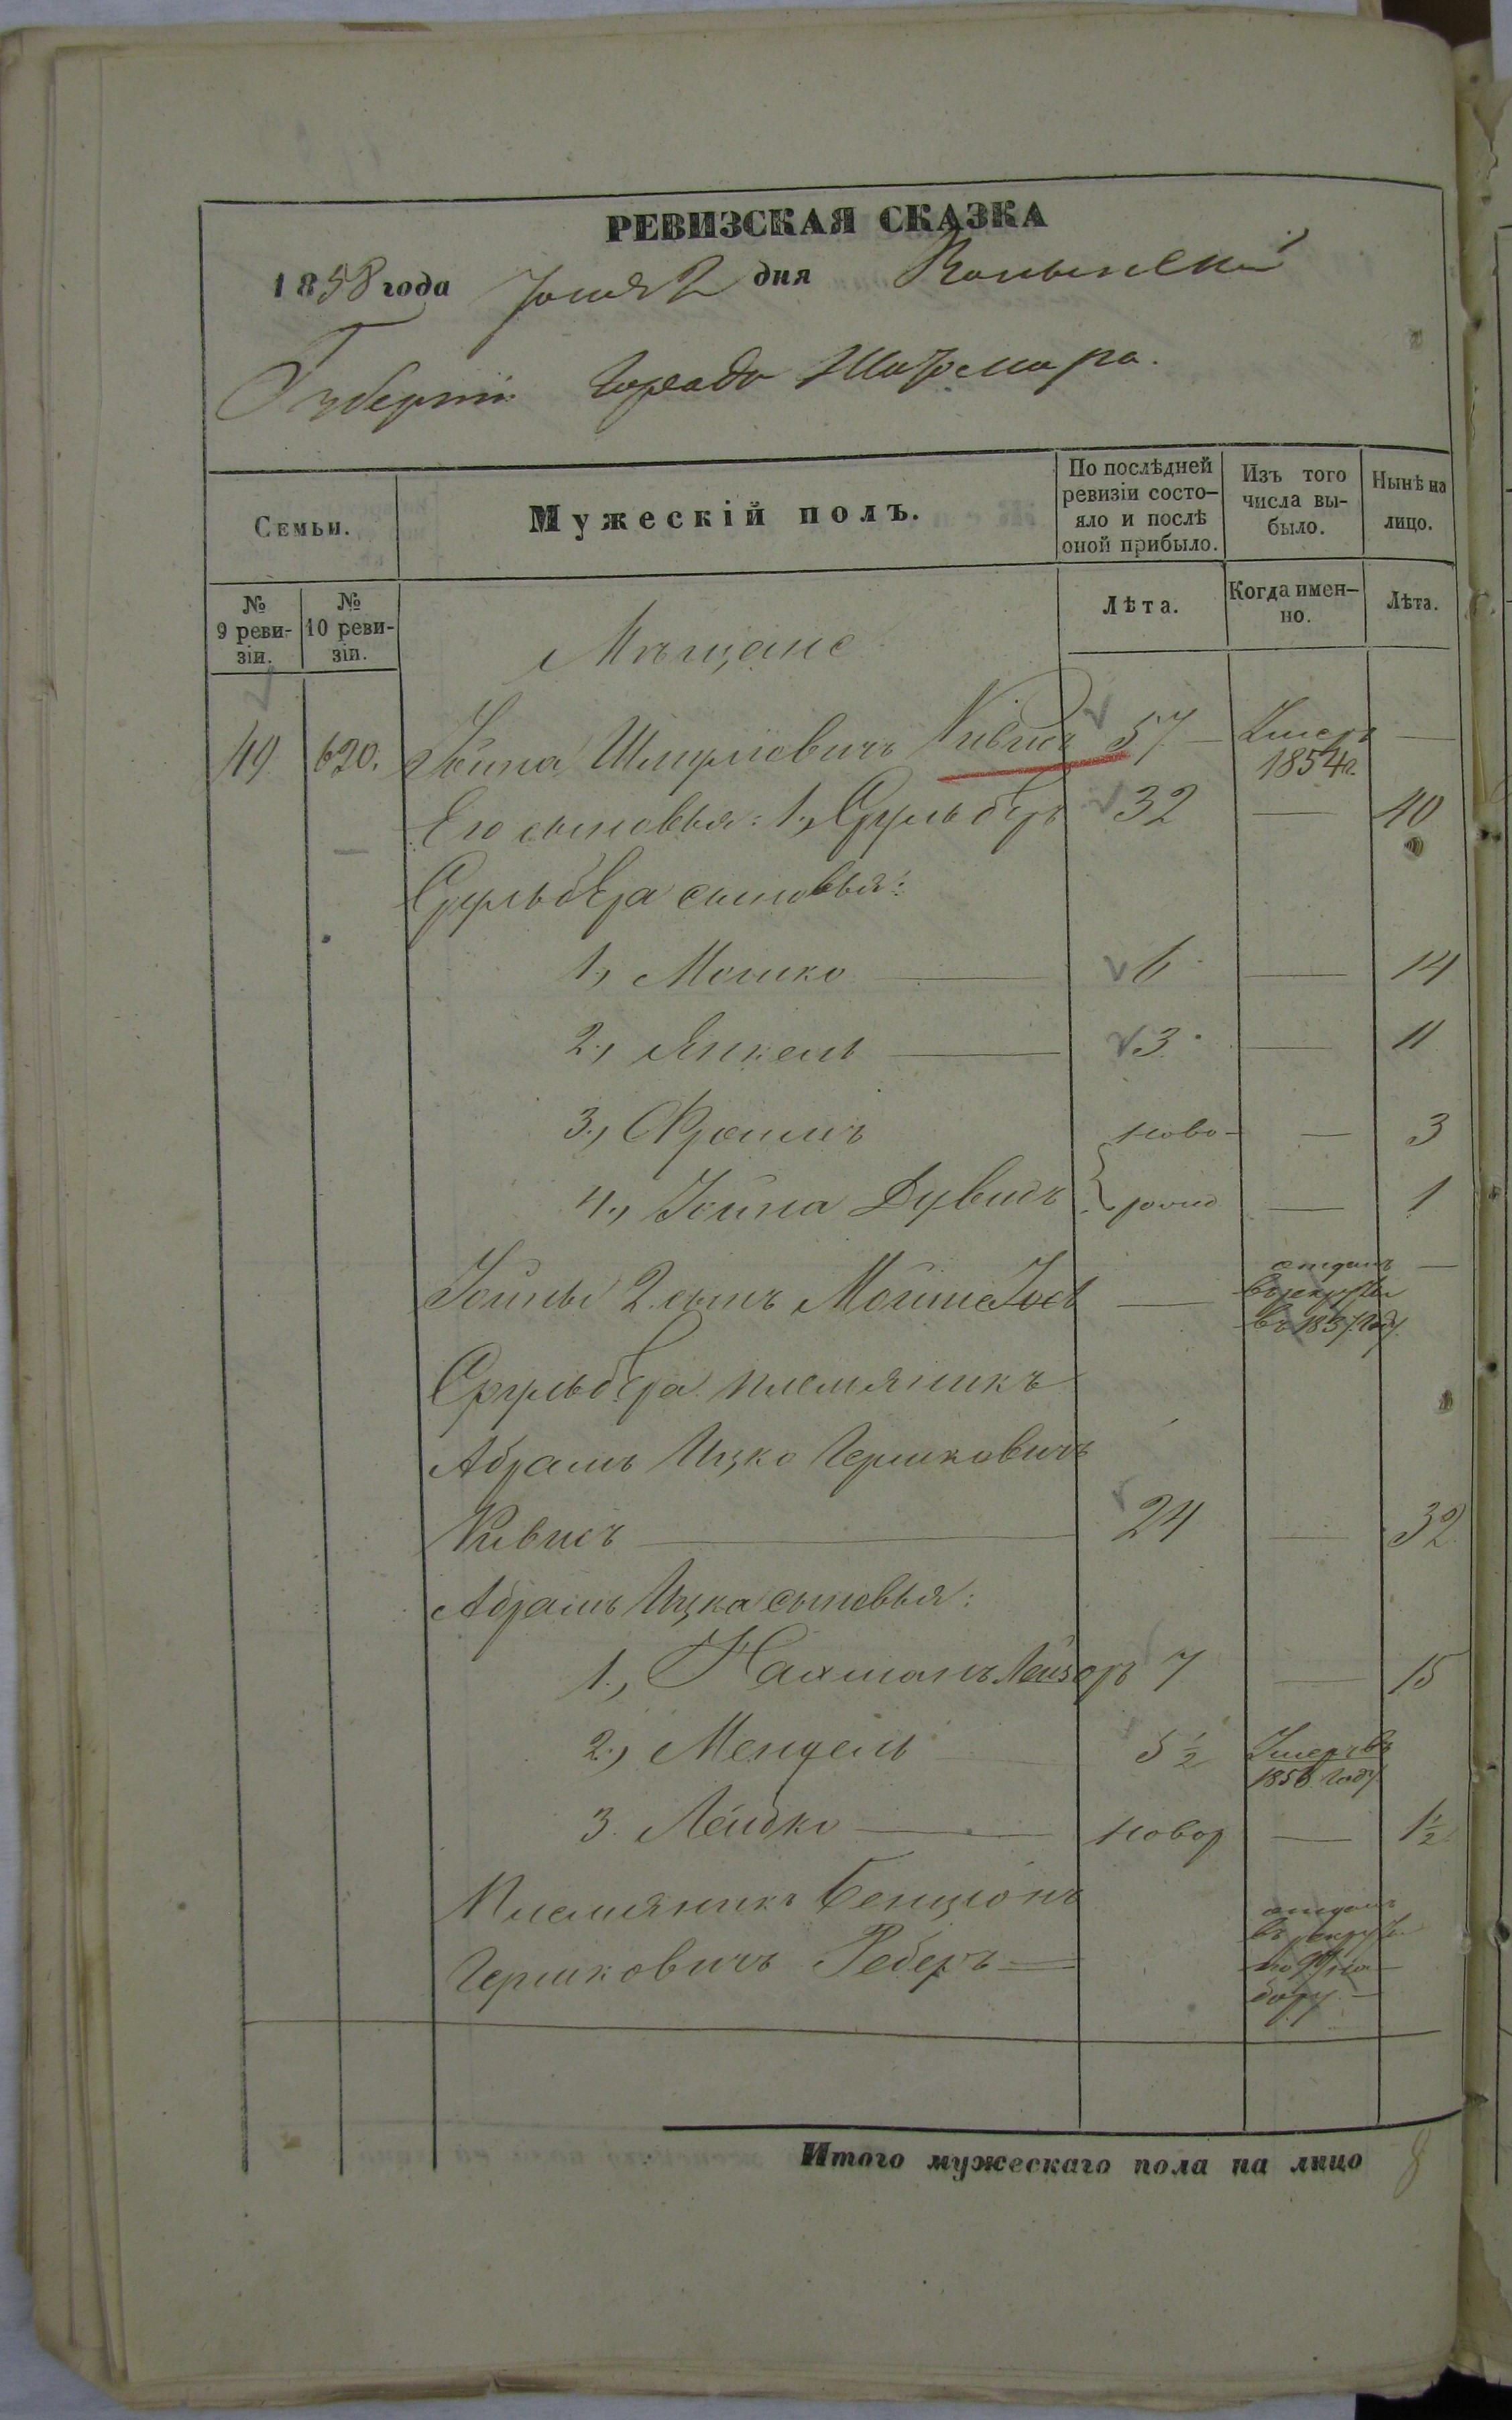 РЕВИЗСКАЯ СКАЗКА
1858 года Іюня 2 дня Волынской
Губерніи города Житомира.
Семьи.
Мужескій полъ.
По послѣдней ревизіи состо-
яло и послѣ
оной прибыло.
Изъ того
числа вы-
было.
Нынѣ на
лицо.
№
9 реви-
зіи.
№
10 реви-
зіи.
Лѣта.
Когда имен-
но.
Лѣта.
Мѣщане
49 620. Іойна Шмулёвичъ Кивисъ 57 — Умеръ 1854 г. —
Его сыновья: 1., Сруль бѣръ 32 — 40
Сруль бѣра сыновья:
1., Мошко — 6 — 14
2., Янкель — 3 — 11
3., Фроимъ ново- — 3
4., Іойна Дувидъ рожд — 1
Іойны 2. сынъ Мойше Іось — отданъ въ рекруты въ 1857 году. —
Сруль бѣра племяникъ
Абрамъ Ицко Гершковичъ
Кивисъ — 24 — 32
Абрамъ Ицка сыновья:
1., Нахманъ Лейзоръ 7 — 15
2., Мендель 5 ½ Умеръ въ 1856 году.
3. Лейбко — новор — 1½
Племяникъ Бенціонъ отданъ
Гершковичъ Реберъ — въ рекруты
бору —
Итого мужескаго пола на лицо 8